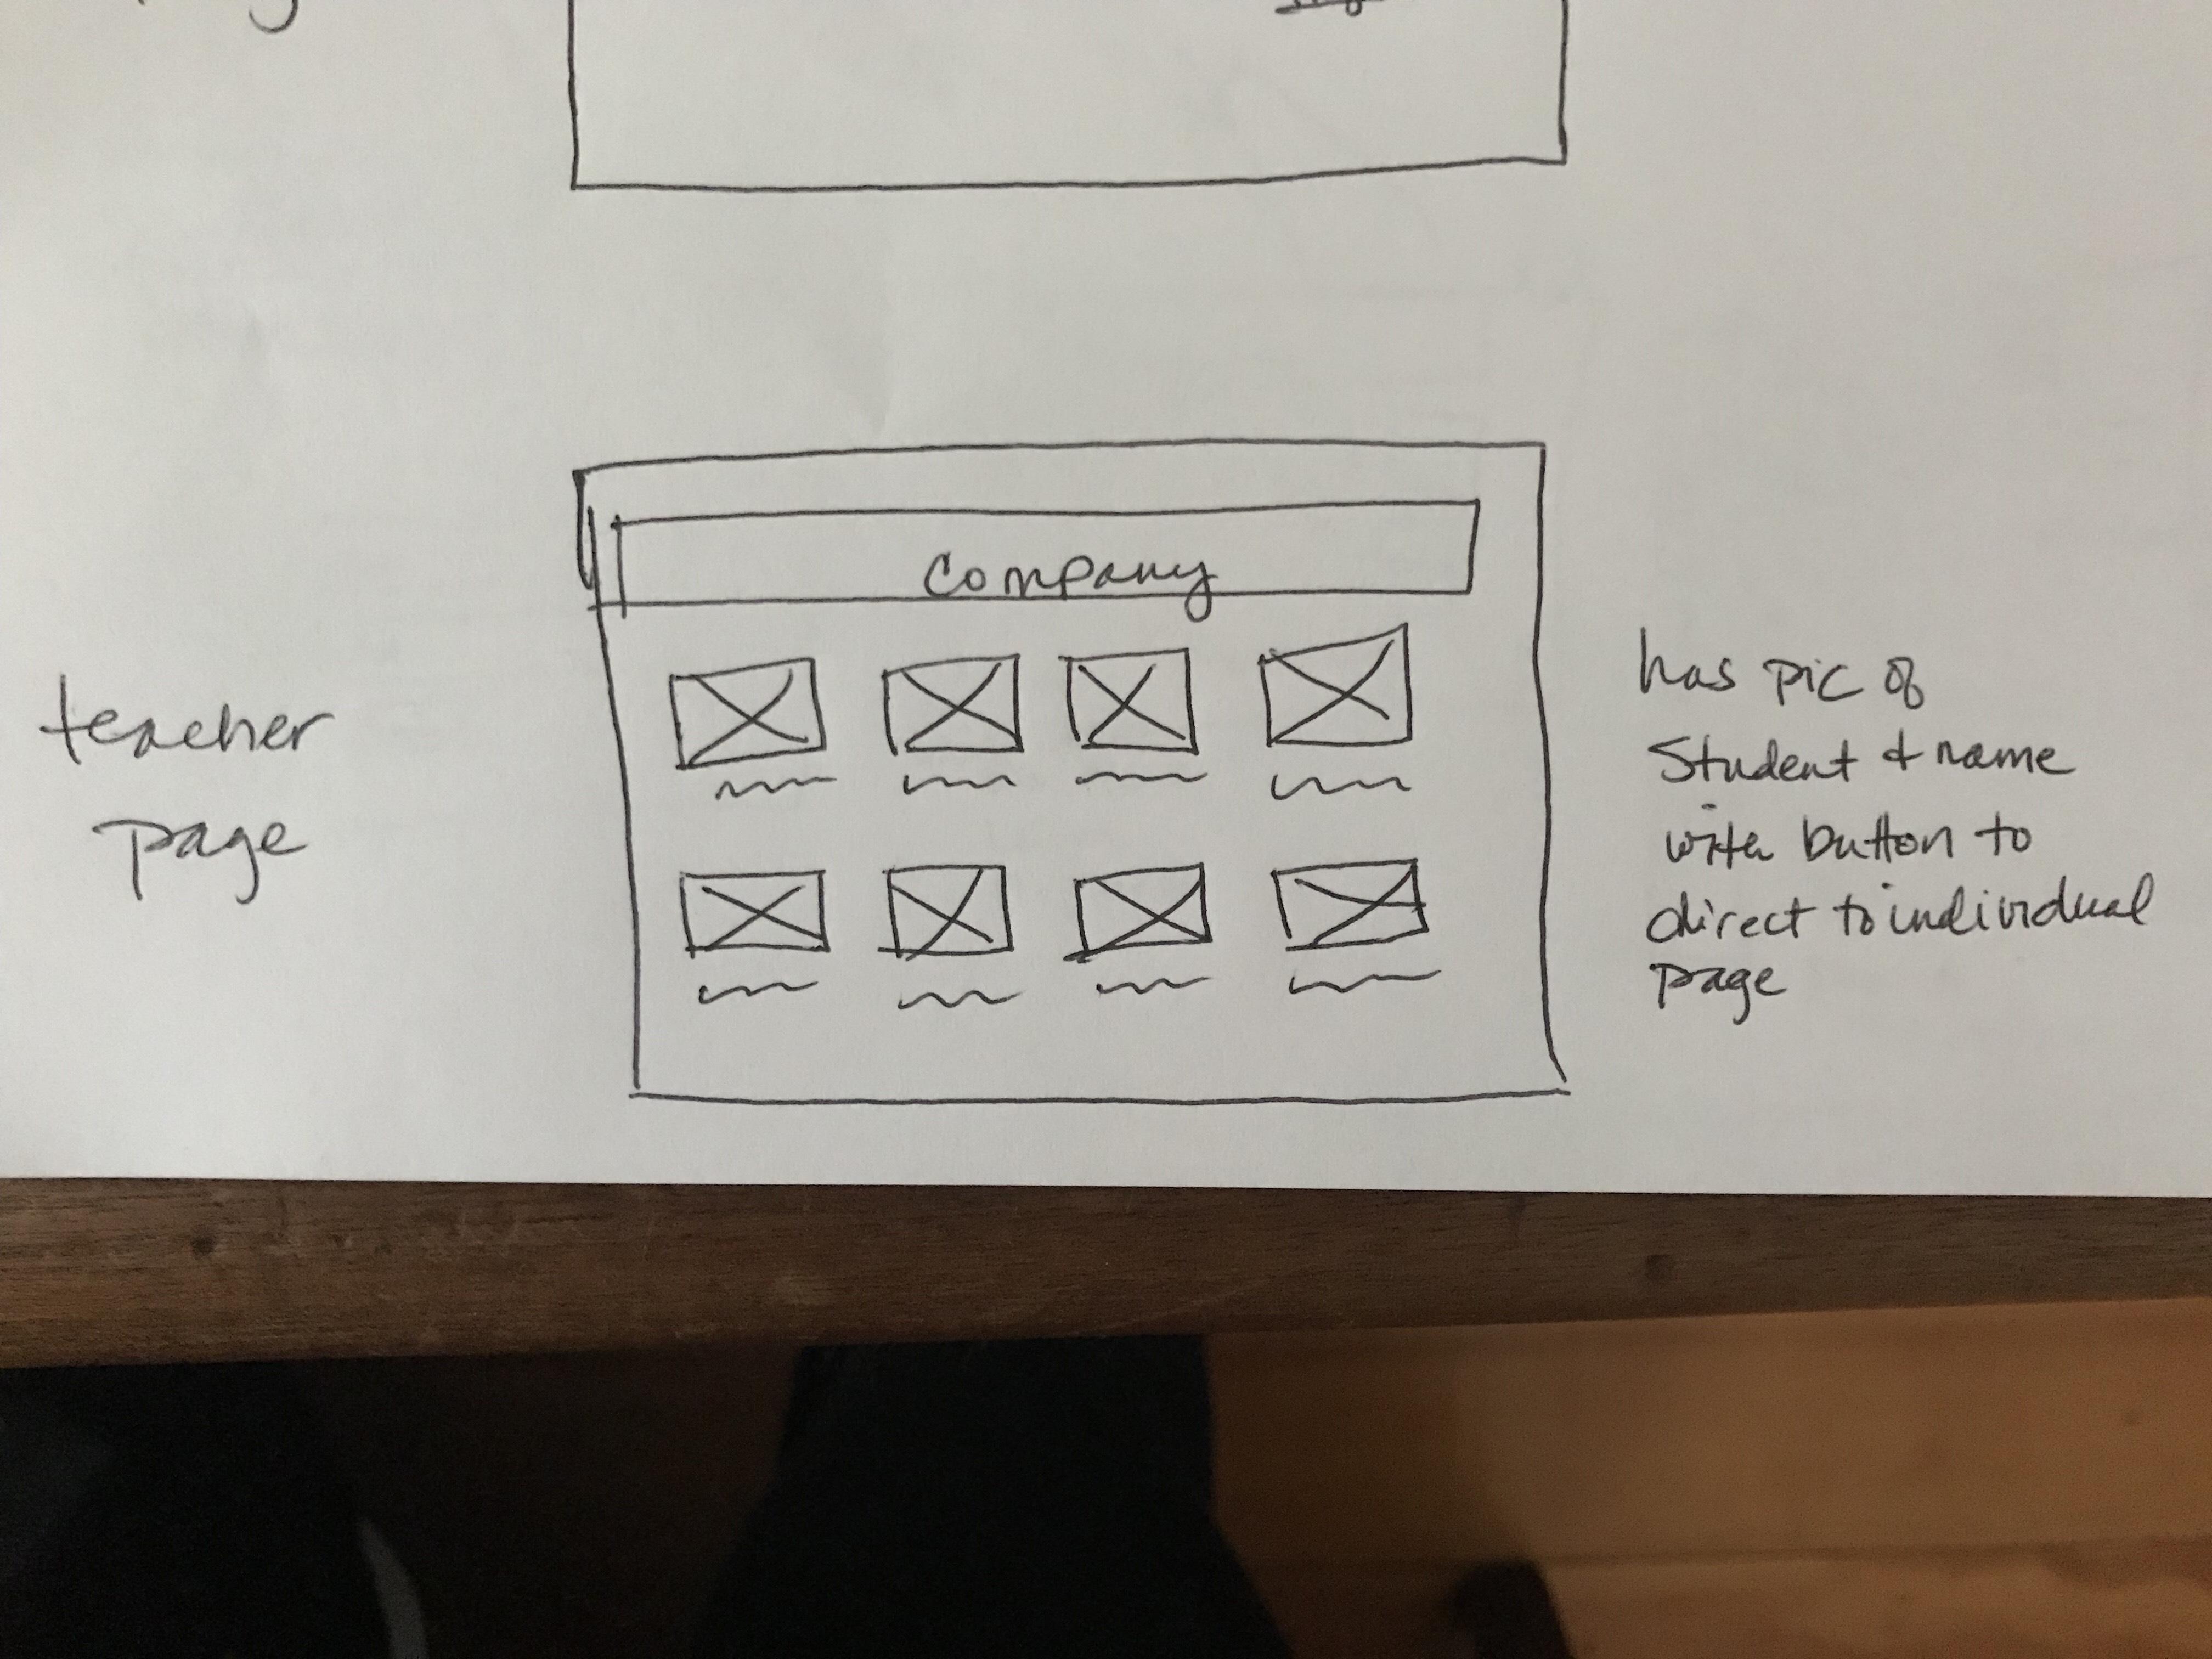 Company
teacher
page
has pic of
Student & name
with button to
direct to individual
page